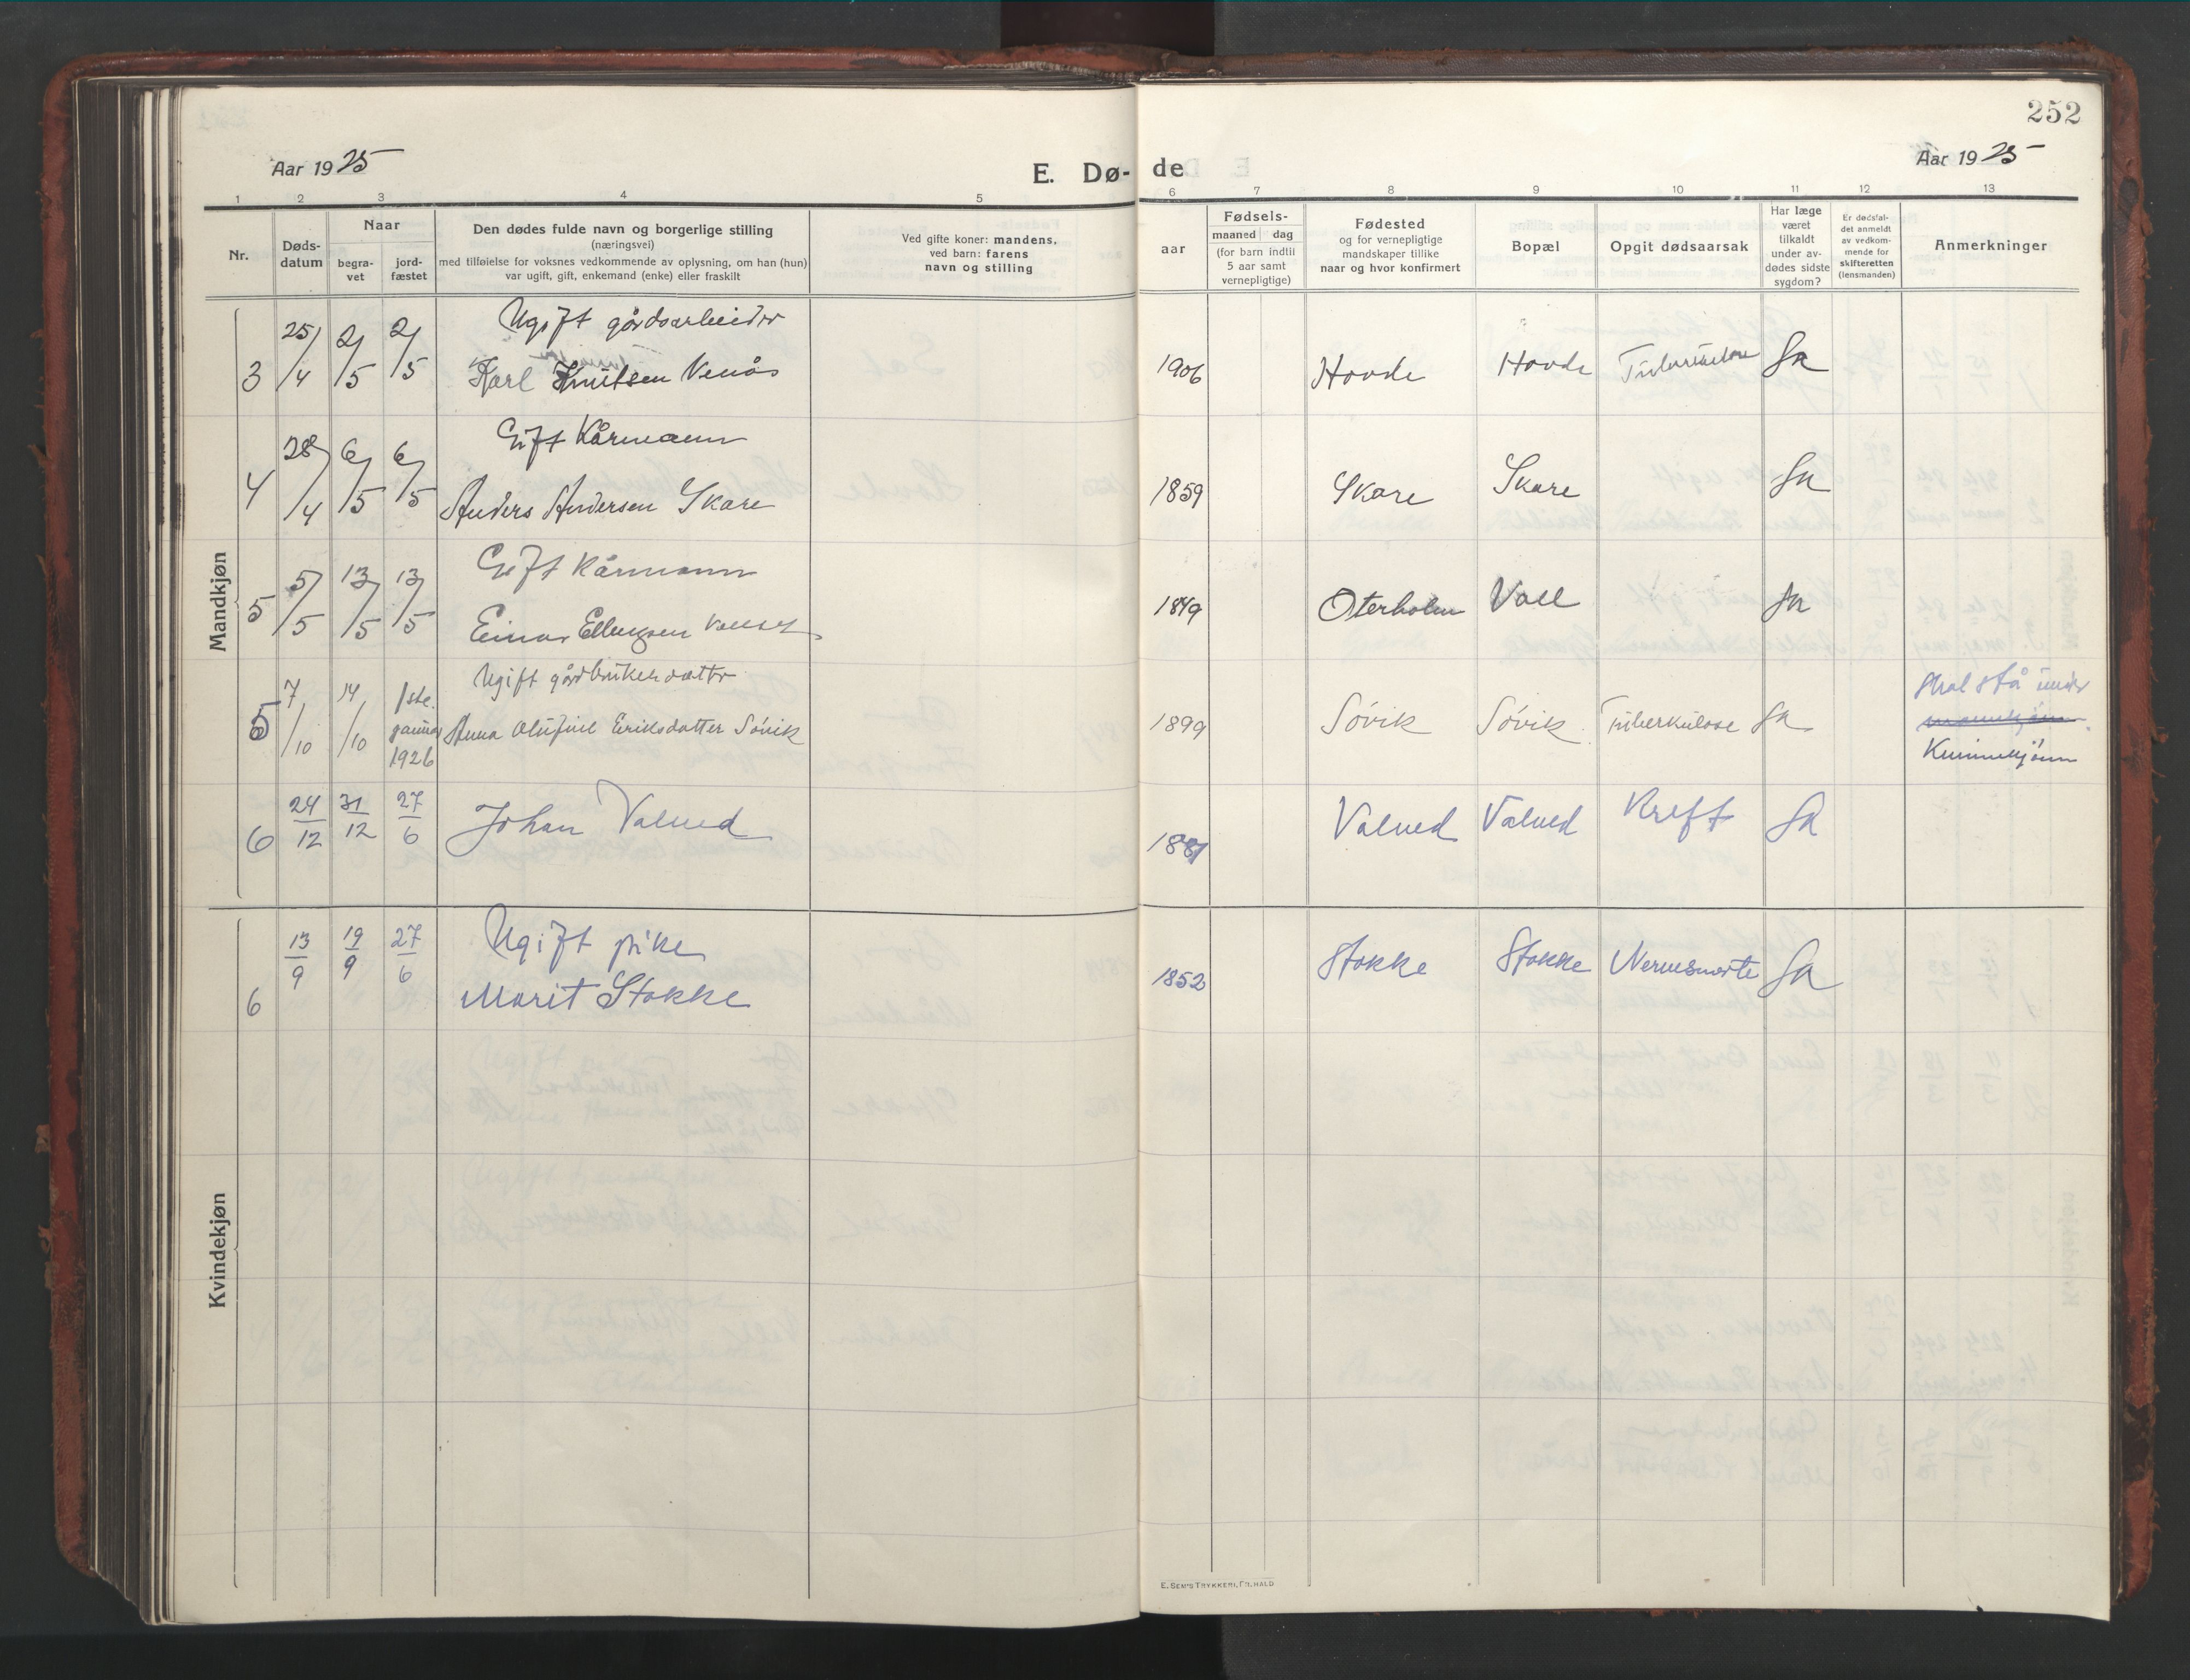 252
Aar 1925
E. Dø-de
Aar 1925
1 2 3 4 5 6 7 8 9 10 11 12 13
Nr.
Døds-
datum
Naar
begra-
vet
jord-
fæstet
Den dødes fulde navn og borgerlige stilling
(næringsvei)
med tilføielse for voksnes vedkommende av oplysning, om han (hun)
var ugift, gift, enkemand (enke) eller fraskilt
Ved gifte koner: mandens,
ved barn: farens
navn og stilling
aar
Fødsels-
maaned dag
(for barn indtil
5 aar samt
vernepligtige)
Fødested
og for vernepligtige
mandskaper tillike
naar og hvor konfirmert
Bopæl
Opgit dødsaarsak
Har læge
været
tilkaldt
under av-
dødes sidste
sygdom?
Er dødsfal-
det anmeldt
av vedkom-
mende for
skifteretten
(lensmanden)
Anmerkninger
Mandkjøn
3 25/4 2/5 2/5 Ugift gårdsarbeider
Karl Knutsen Venås 1906 Hovde Hovde Tuberkulose Ja
4 28/4 6/5 6/5 Gift Kårmann
Anders Andersen Skare 1859 Skare Skare Ja
5 5/5 13/5 13/5 Gift Kårmann
Einar Ellingsen 1849 Oterholm Voll Ja
5 7/10 14/10 1ste januar 1926 Ugift gårdbrukerdatter
Anna Olufine Eriksdatter Sóvik 1899 Sóvik Sóvik Tuberkulose Ja
Skal stå under
mannkjønn
Kvinnekjønn
6 24/12 31/12 27/6 Johan Valved 1881 Valved Valved Kreft Ja
Kvindekjøn
6 13/9 19/9 27/6 Ugift pike
Marit Stokke 1852 Stokke Stokke Nervesmerte Ja
E. SEM'S TRYKKERI, FR.HALD